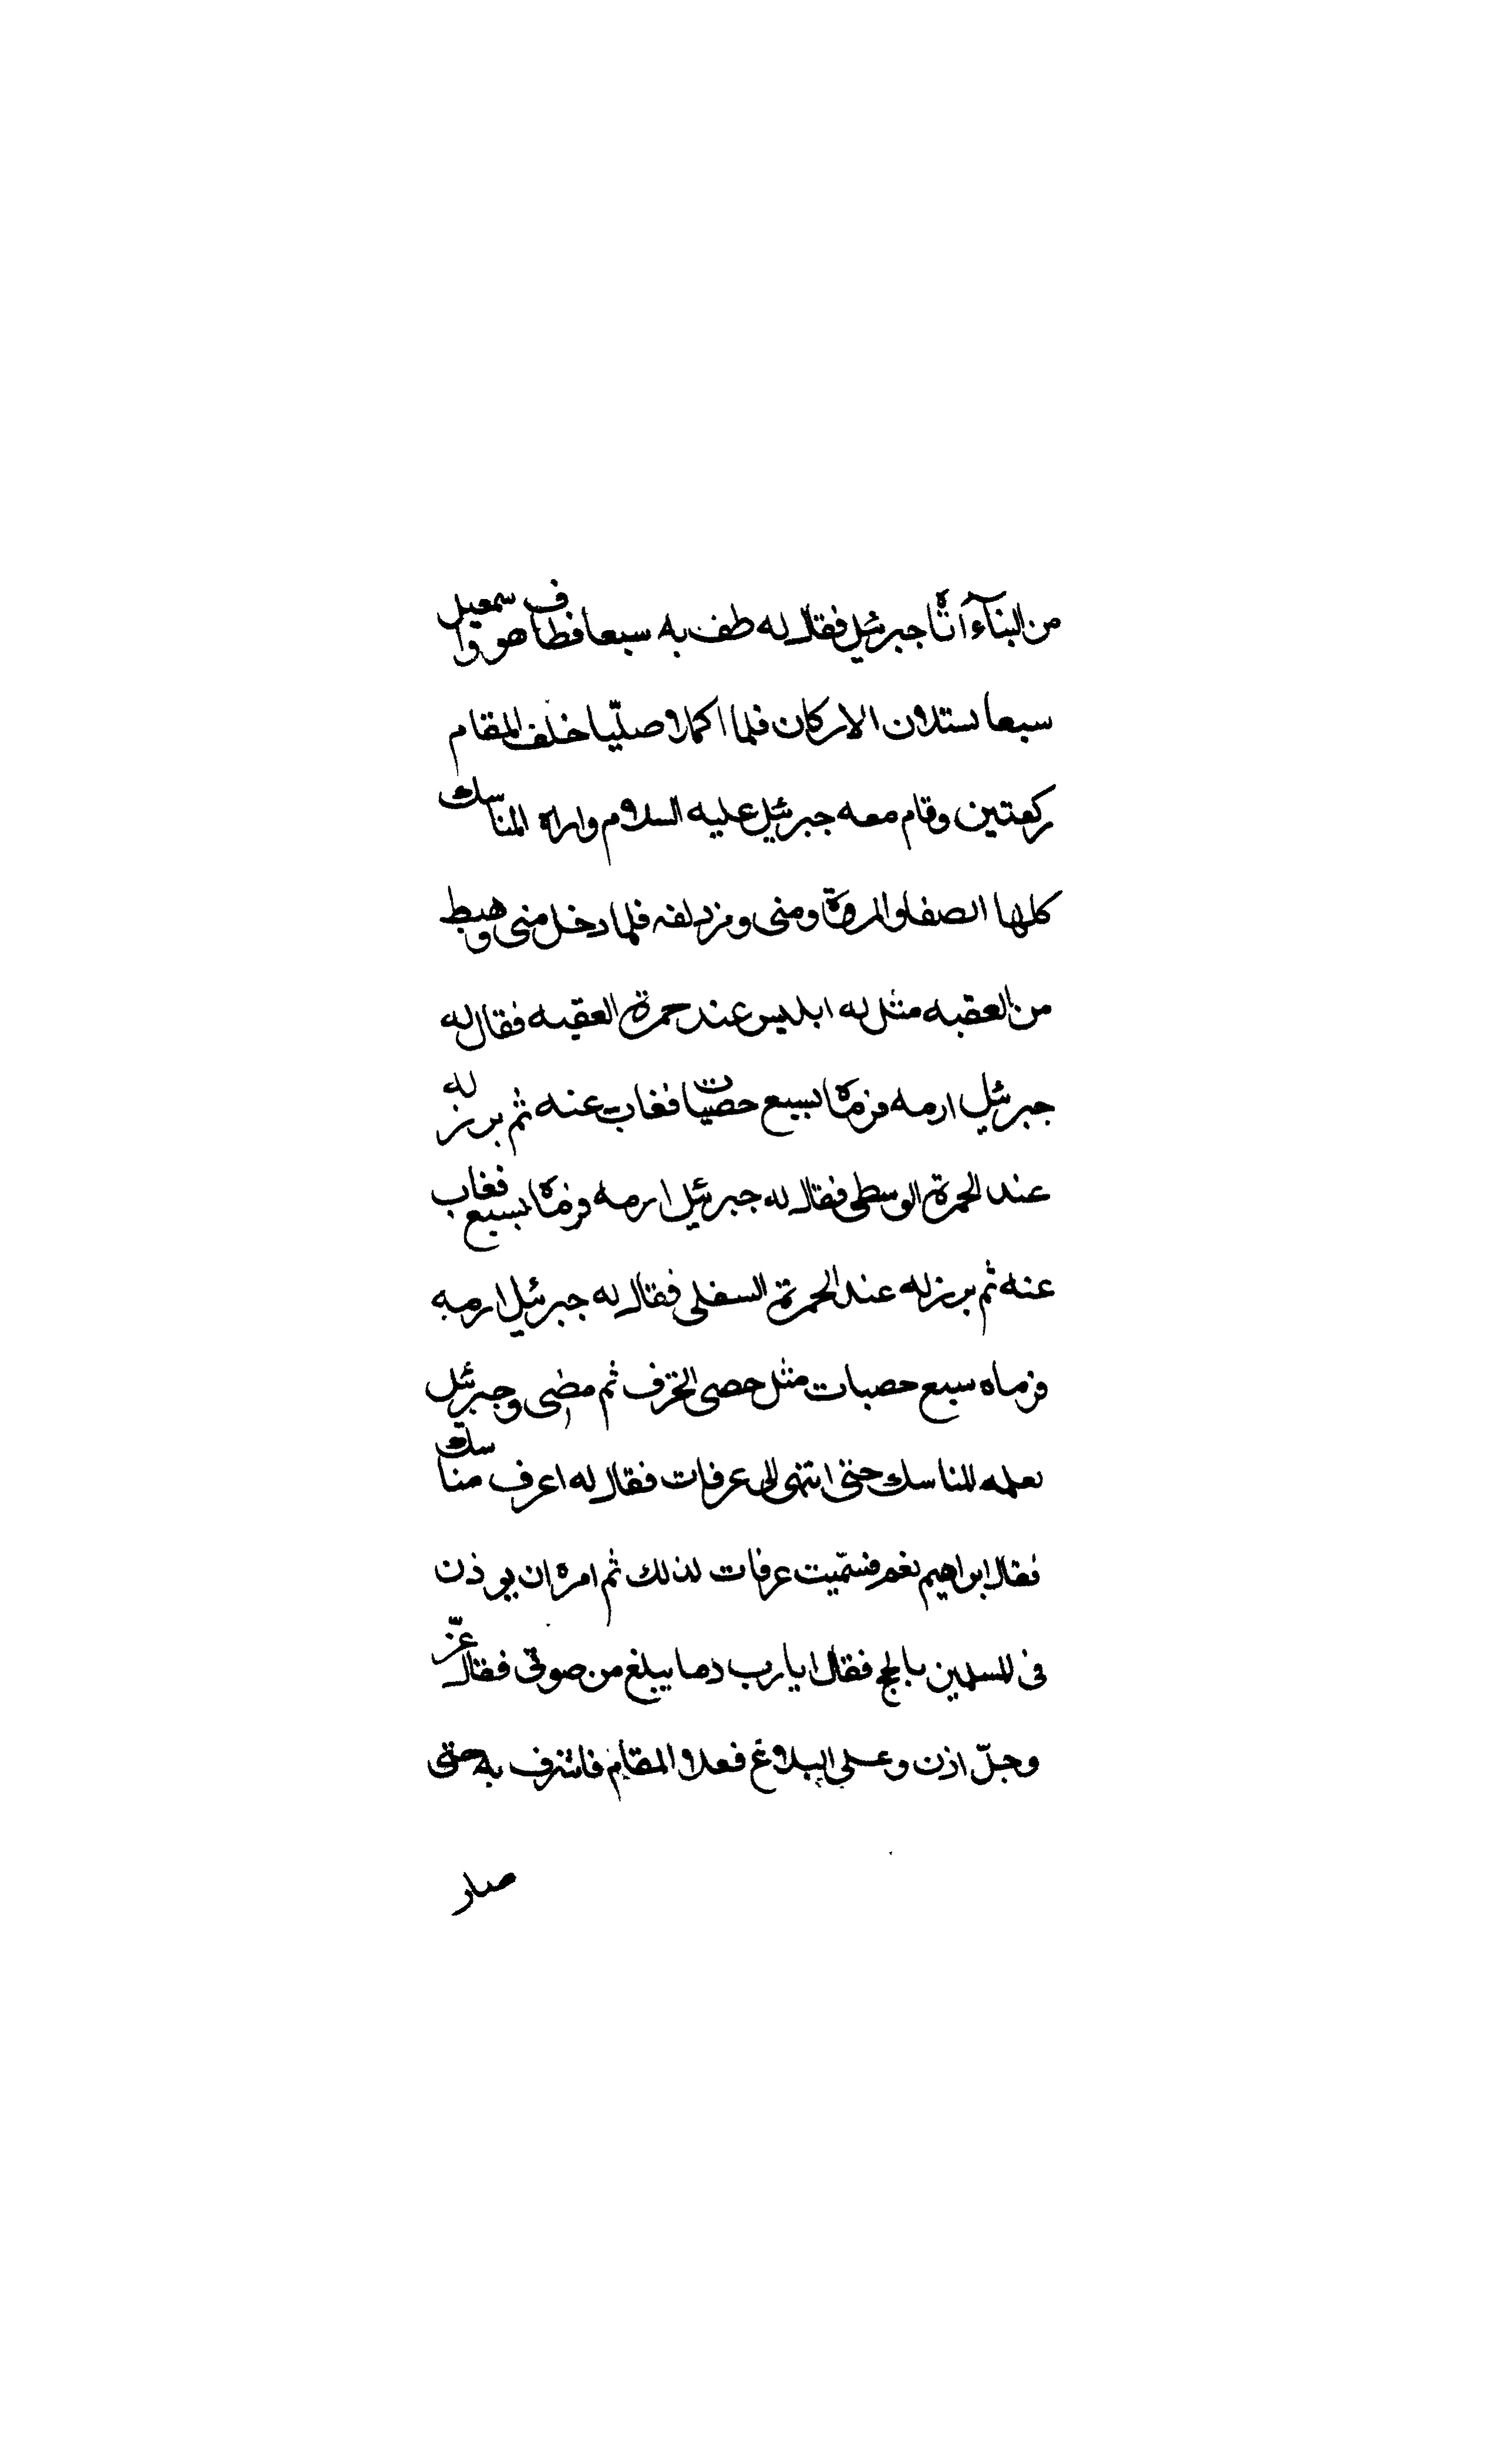 من البنآء اتاه جبرئيل فقال له طف به سبعا فطاف هو واسمعيل
سبعا يستلمان الاركان فلما اكملا صليّا خلف المقام
ركعتين وقام معه جبرئيل عليه السلام واراه المناسك
كلها الصفا والمروة ومنى ومزدلفه فلما دخل منى وهبط
من العقبه مثل له ابليس عند جمرة العقبه فقال له
جبرئيل ارمه فرماه بسبع حصيات فغاب عنه ثم برز له
عند الجمرة الوسطى فقال له جبرئيل ارمه فرماه بسبع فغاب
عنه ثم برز له عند الجمرة السفلى فقال له جبرئيل ارمه
فرماه سبع حصيات مثل حصى الخزف ثم مضى وجبرئيل
يعلمه المناسك حتى انتهى الى عرفات فقال له اعرف مناسك
فقال ابراهيم نعم فسمّيت عرفات لذلك ثم امره ان يوذن
فى المسلمين بالحج فقال يا رب وما يبلغ من صوتى فقال عزّ
وجلّ اذن وعلى البلاغ فعلا المقام فاشرف به حتى
صار